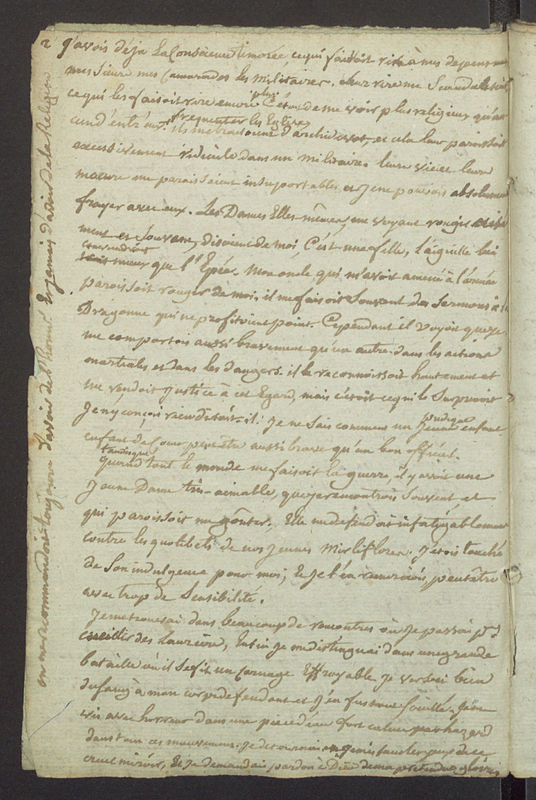 2 j'avois déja la Conscience timorée ce qui faisoit rire à mes dépens
mes sieurs mes Camarades les Militaires. leur rire me Scandalisoit
ce qui les faisoit rire encore plus. C'étoit de me voir plus religieux qu'au
cun d'entr'eux, frequenter les Eglises
et cela leur paroissoit
excessivement ridicule dans un militaire. leur vie et leurs
mœurs me paraissoient insuportables et je ne pouvois absolument
frayer avec eux. Les Dames Elles mêmes, me voyant rougir
ment et Souvent, disoient de moi, C'est une fille, l'aiguille lui
conviendroit
mieux que l'Epée. Mon oncle qui m'avoit amené à l'armée
paroissoit rougir de moi, il me faisoit Souvent des Sermons à la
Dragonne qui ne profitoient point. Cependant il voyoit que je
me comportois aussi bravement qu'un autre dans les actions
martiales et dans les dangers. il le reconnoissoit hautement et
me rendoit justice à cet Egard, mais c'étoit ce qui le Surprenoit
Je n'y conçois rien disoit-il: je ne sais comment un pudique
jeune enfant
enfant de Chœur peut être aussi brave qu'un bon officier.
tandisque
tout le monde me faisoit la guerre, il y avoit une
Jeune Dame très-aimable, que je rencontrois Souvent et
qui paroissoit me goûter. Elle me défendoit infatigablement
contre les quolibets de nos jeunes Mirliflores. J'etois touché
de Son indulgence pour moi, & je l'en remerciois peut être
avec trop de Sensibilité.
Je me trouvai dans beaucoup de rencontres où je passai pr
cueillir des lauriers, Enfin je me distinguai dans une grande
bataille où il Se fit un Carnage Effroyable. je versai bien
du sang à mon corps défendant et j'en fus tout Souillé. je me
vis avec horreur dans une pièce d'eau fort calme par hazard
dans tous ces mouvemens. je détournai en gémissant les yeux de ce
cruel miroir, & Je demandai pardon à Dieu de ma prétendue gloire
on me recommandoit toujours d'avoir de l'honneur Et jamais d'avoir de la Religion